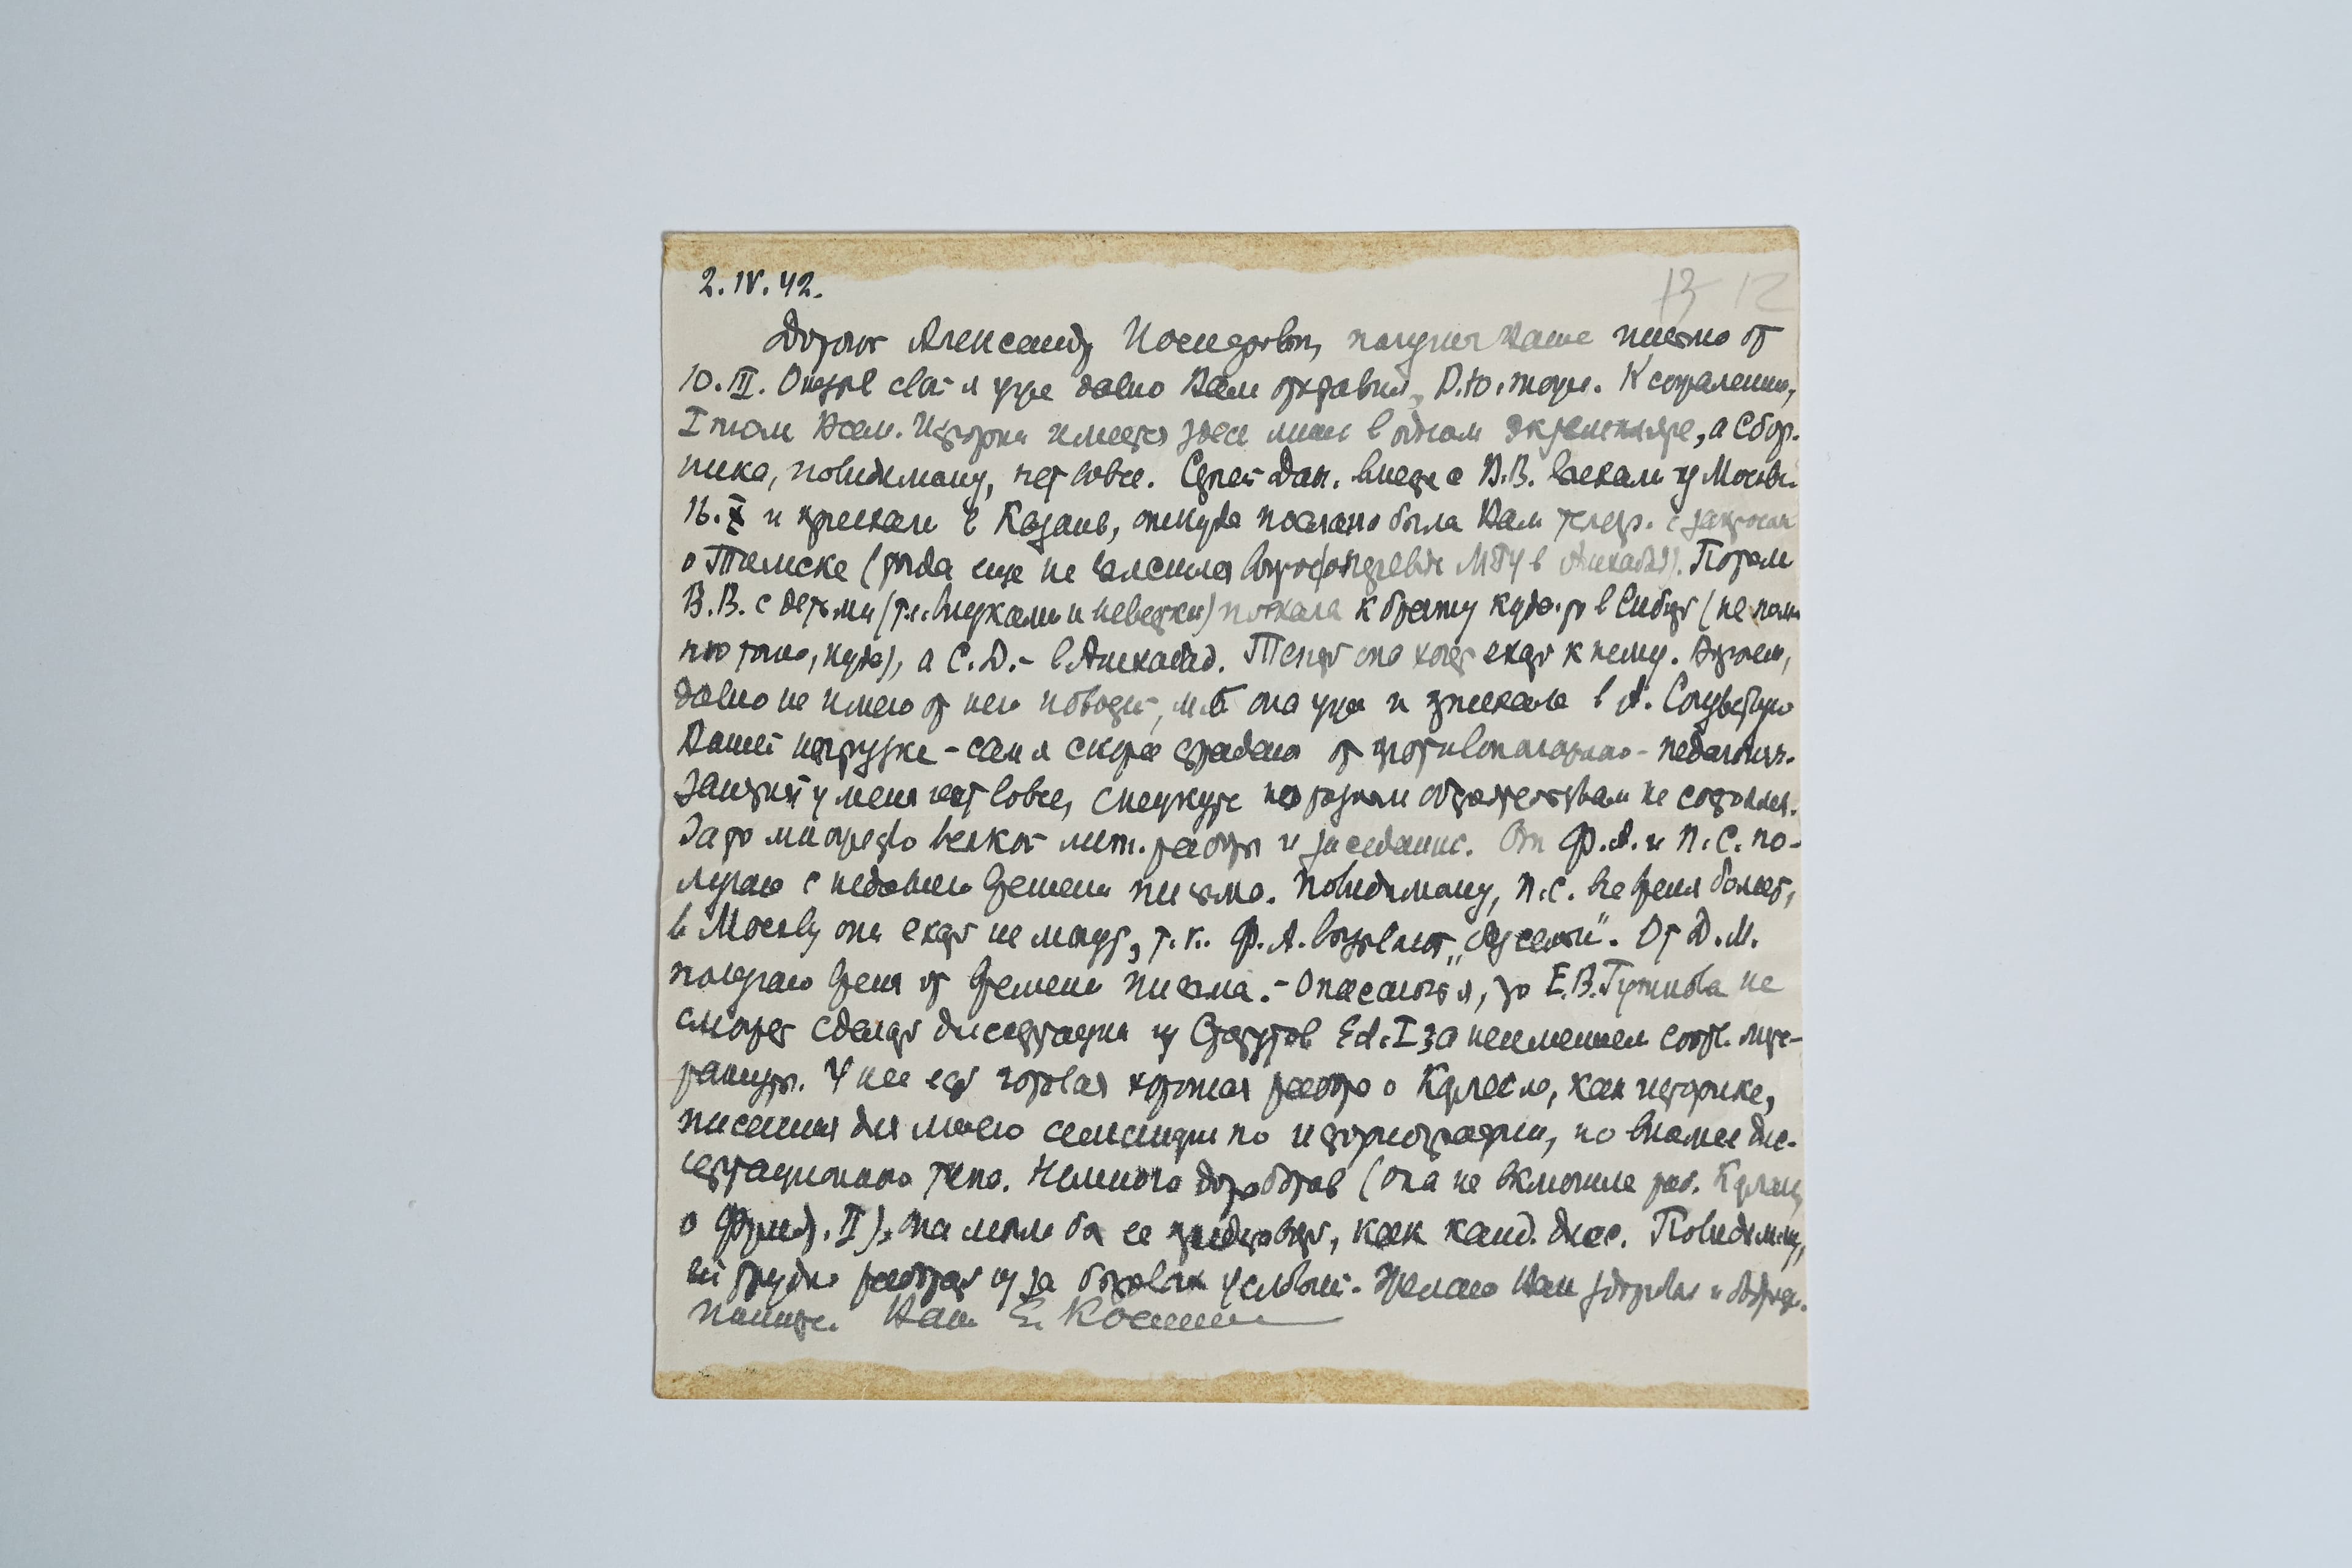 2.IV.42.
13 12
Дорогой Александр Иосифович, получил Ваше письмо от
10.III. Отзыв свой я уже давно Вам отправил, В.Ю. тоже. К сожалению,
I том Всем. Истории имеется здесь лишь в одном экземпляре, а Сбор-
ника, повидимому, нет вовсе. Сергей Дан. вместе с В.В. выехали из Москвы
16.X и приехали в Казань, откуда послано было Вам телегр. с запросом
о Томске (тогда еще не выяснился МГУ в Ашхабад). Потом
В.В. с детьми (т.е. внуками и невесткой) поехала к брату куда-то в Сибирь (не пом-
ню точно, куда), а С.Д. – в Ашхабад. Теперь она хочет ехать к нему. Впрочем,
давно не имею от нее новостей, м.б. она уже и приехала в А. Сочувствую
Вашей нагрузке – сам я скорее страдаю от противоположного – педагогич.
занятий у меня нет вовсе, спецкурс по разным обстоятельствам не состоялся.
Зато множество всякой лит. работы и заседаний. От Ф.А. и П.С. по-
лучаю с недавнего времени письма. Повидимому, П.С. все время болеет,
в Москву они ехать не могут, т.к. Ф.А. вызывают „без семьи". От Д.М.
получаю время от времени письма. – Опасаюсь я, что Е.В. Гутнова не
сможет сделать диссертации из Статутов Ed. I за неимением соотв. лите-
ратуры. У нее есть готовая хорошая работа о Карлейле, как историке,
писанная для моего семинария по историографии, но вполне дис-
сертационного типа. Немного доработав (она не включила раб. Карлейля
о Фридр. II), она могла бы ее представить, как канд. дисс. Повидимому,
ей трудно работать из за бытовых условий. Желаю Вам здоровья и бодрости.
Пишите. Ваш Е. Косминский